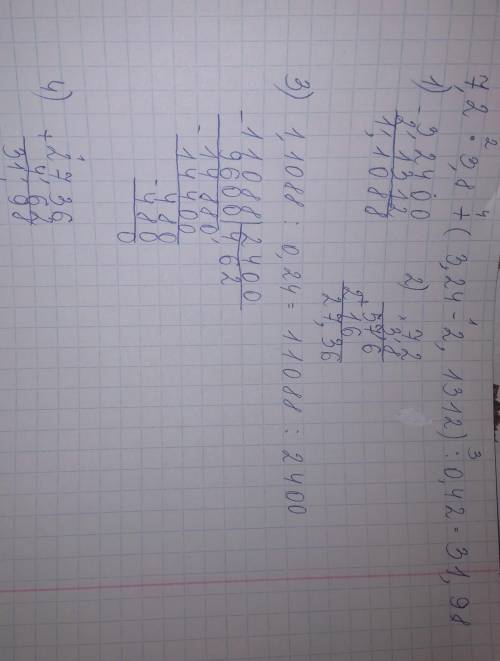 2 4 1 3
7,2 · 3,8 + ( 3,24 - 2, 1312) : 0,42 = 31, 98
1) - 3,2400
2,1312
1,1088
2) × 7,2
3,8
+ 576
216
27,36
3) 1,1088 : 0,24 = 11088 : 2400
- 11088 | 2400
9600 | 4 62
- 14880
14400
- 480
480
0
4) + 27,36
4,62
31,98